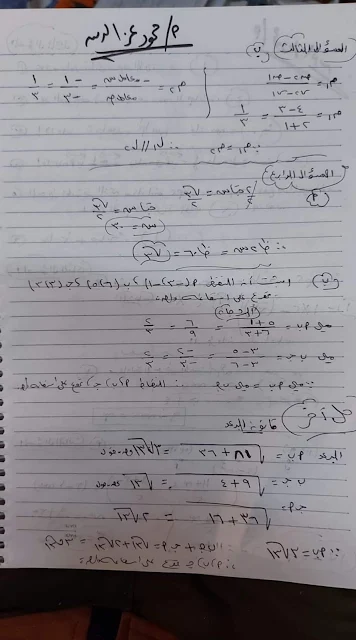 م/ محمود عز الدين
السؤال الثالث ب
م١ = ص٢ - ص١ / س٢ - س١
م٢ = - معامل س / معامل ص = -١ / -٣ = ١ / ٣
م١ = ٤ - ٣ / ٢ + ١ = ١ / ٣
∵ م١ = م٢ ∴ ل١ // ل٢
السؤال الرابع
جتا س = √٣ / ٢
س = ٣٠
∴ ظا ٢س = ظا ٦٠ = √٣
ب) اثبت أن النقط
تقع على استقامة واحدة
الحل
ميل أب = ٥ + ١ / ٦ + ٣ = ٦ / ٩ = ٢ / ٣
ميل ب ج = ٣ - ٥ / ٣ - ٦ = -٢ / -٣ = ٢ / ٣
∵ ميل أب = ميل ب ج ∴ النقط أ، ب، ج تقع على استقامة واحدة
حل آخر
قانون البعد
البعد أب = √٨١ + ٣٦ = ٣√١٣ وحدة طول
ب ج = √٩ + ٤ = √١٣ وحدة طول
ج أ = √٣٦ + ١٦ = ٢√١٣
∵ أب = ٣√١٣
∴ أ، ب، ج تقع على استقامة واحدة